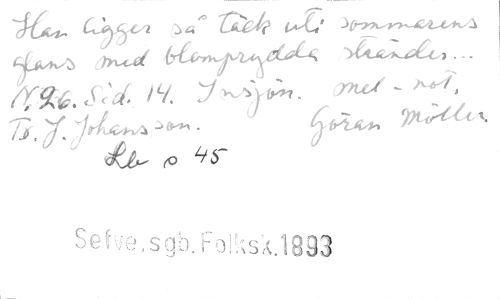 Han ligger så täck uti sommarens
glans med blomprydda stränder...
N. 26. Sid. 14. Insjön. mel-not.
Tr. J. Johansson. Göran Möller.
s 45
Sefve, sgb. Folksk. 1893